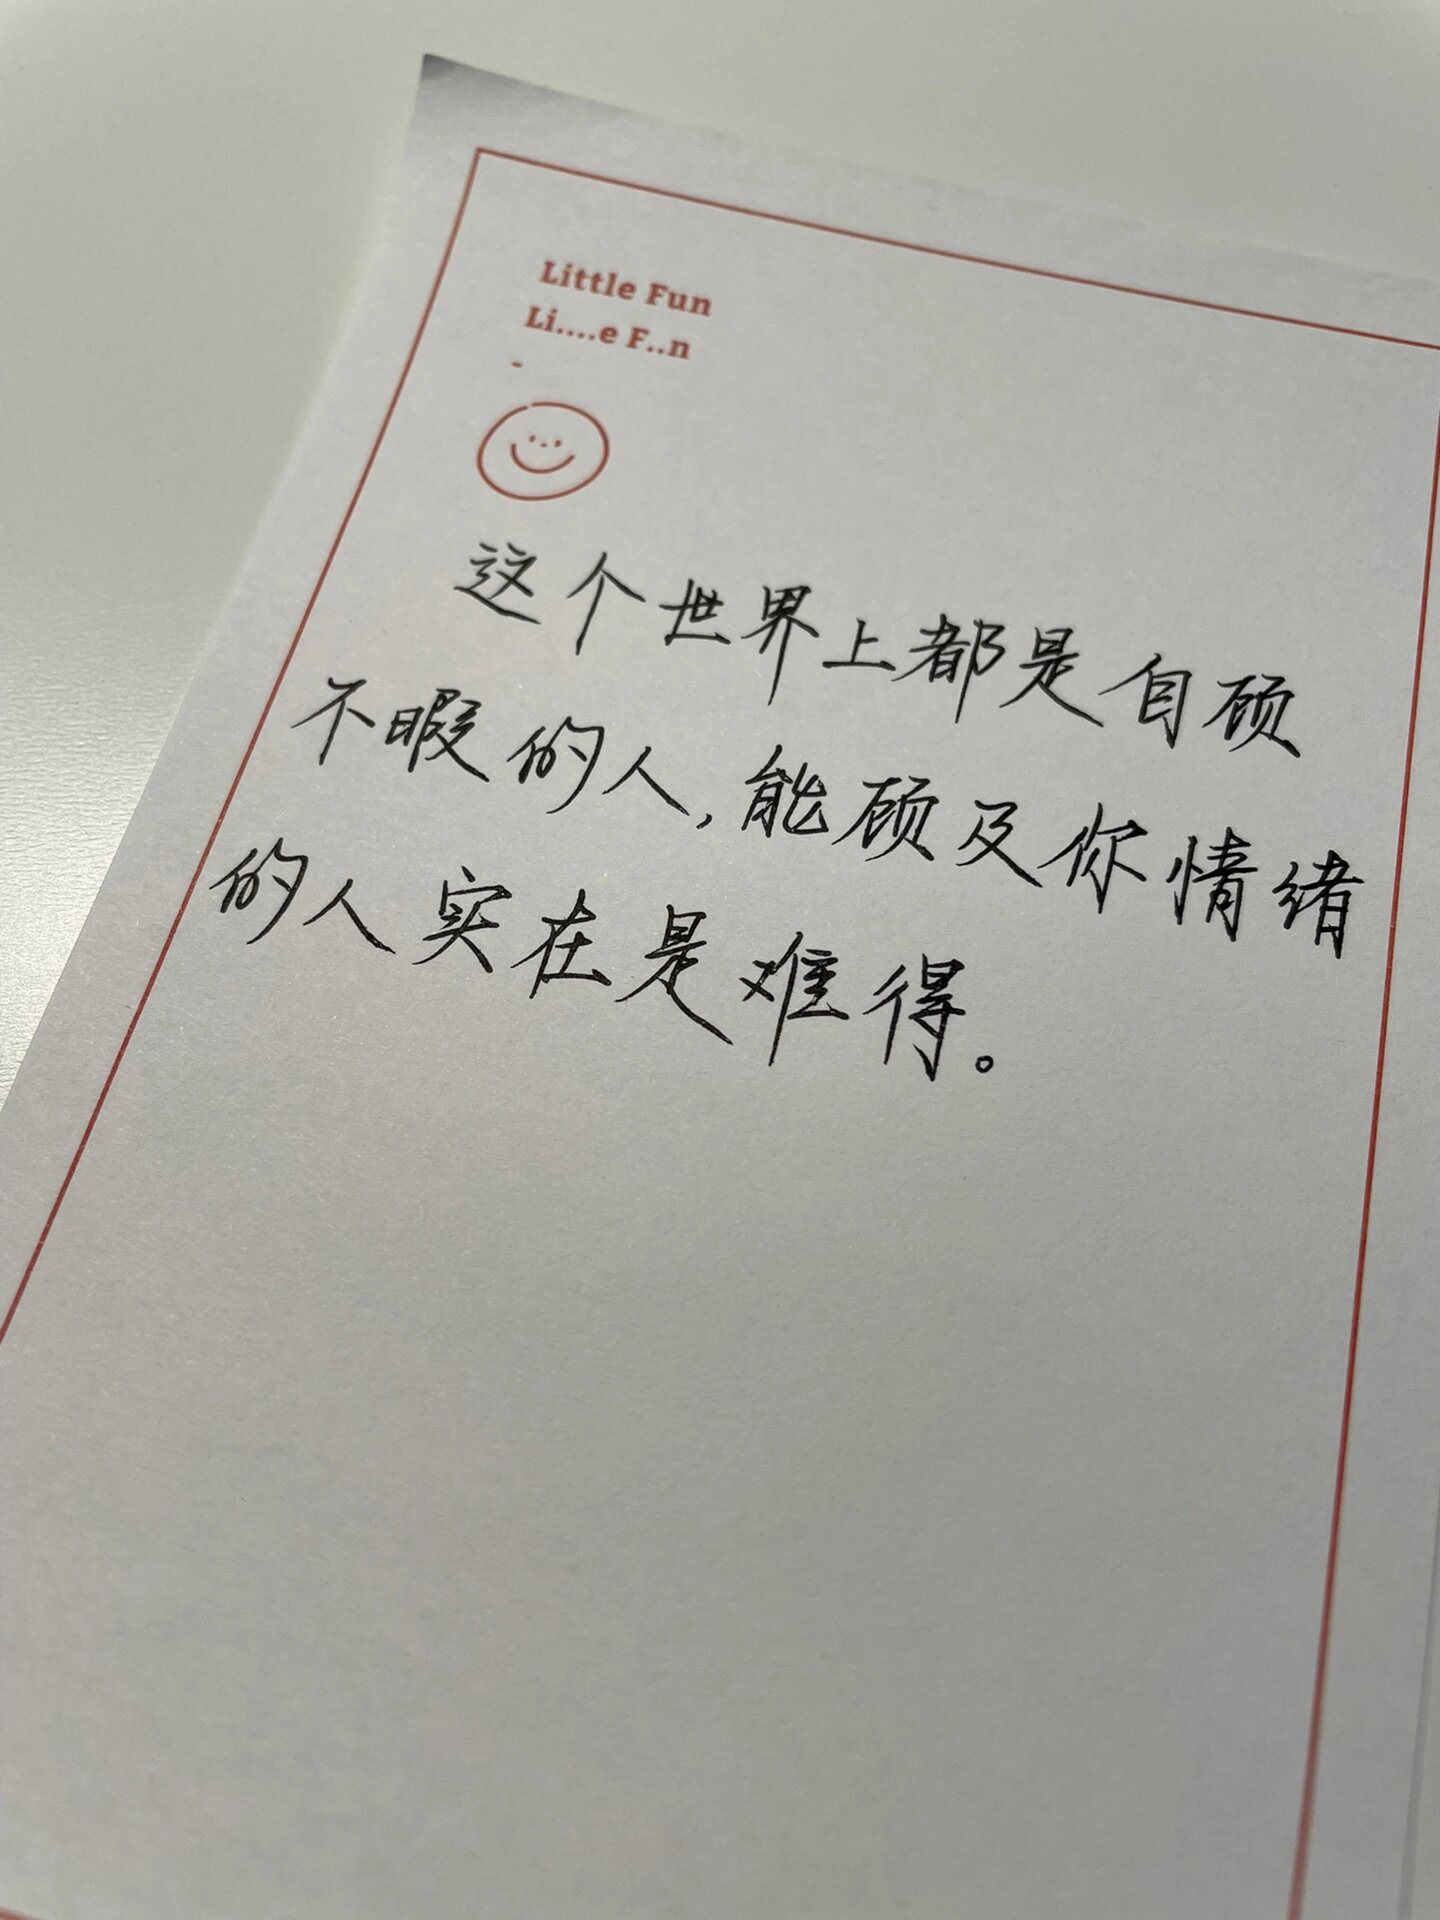 Little Fun
Li....e F..n
-
这个世界上都是自顾
不暇的人,能顾及你情绪
的人实在是难得。